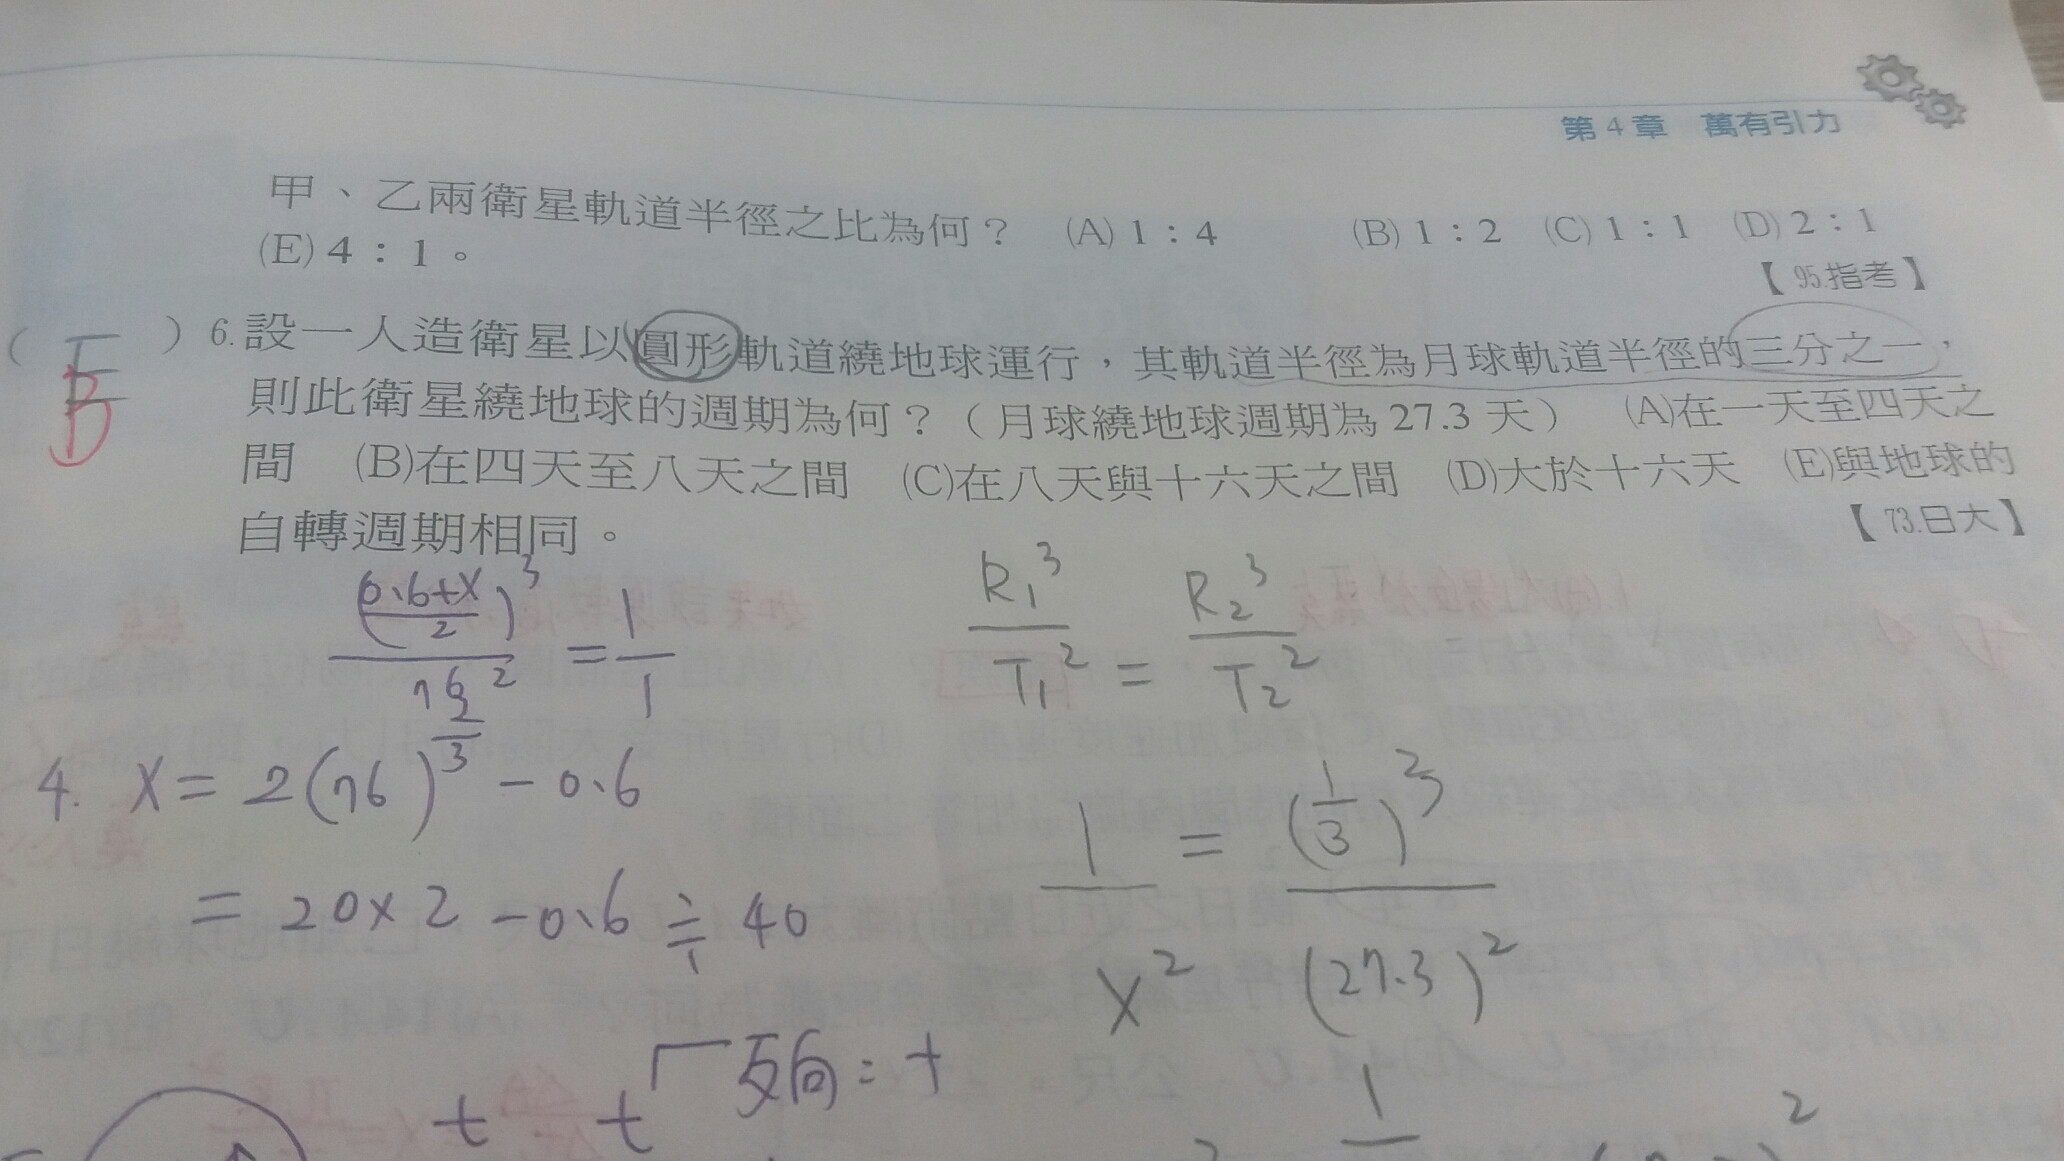 第 4 章 萬有引力
甲、乙兩衛星軌道半徑之比為何？ (A) 1：4 (B) 1：2 (C) 1：1 (D) 2：1
(E) 4：1。
【95.指考】
( E B ) 6. 設一人造衛星以圓形軌道繞地球運行，其軌道半徑為月球軌道半徑的三分之一，
則此衛星繞地球的週期為何？（月球繞地球週期為 27.3 天） (A)在一天至四天之
間 (B)在四天至八天之間 (C)在八天與十六天之間 (D)大於十六天 (E)與地球的
自轉週期相同。
【73.日大】
(0.6+X / 2)³ / 76² = 1/1
R₁³ / T₁² = R₂³ / T₂²
4. X = 2(76)^(2/3) − 0.6
= 20×2 − 0.6 ≑ 40
1 / X² = (1/3)³ / (27.3)²
t t